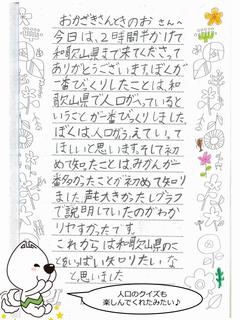 おかざきさんときのおさんへ
今日は、2時間半かけて
和歌山県まで来てくださって
ありがとうございます。ぼくが
一番びくりしたことは、和
歌山県で人口がっているとい
うことが一番びっくりしました。
ぼくは人口がふえていって
ほしいと思います。そして初
めて知たことは、みかんが一
番多かったことが初めて知り
ました。声も大きかったしグラフ
で説明していたのがわか
リやすかったです。
これからは和歌山県のこ
とをいぱい知りたいな
と思いました
人口のクイズも
楽しんでくれたみたい♪